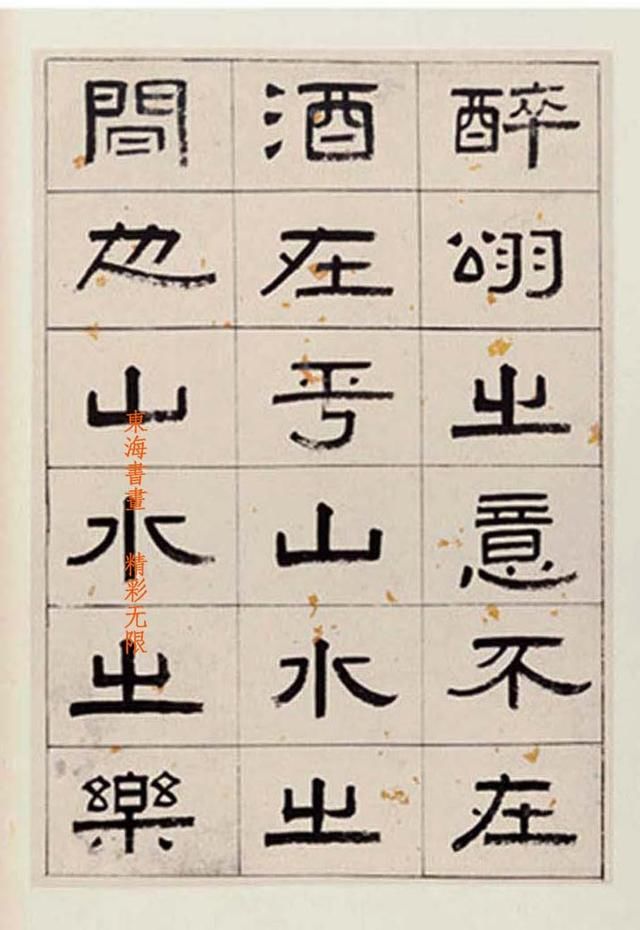 醉翁之意不在
酒在乎山水之
間也山水之樂
東海書畫 精彩无限